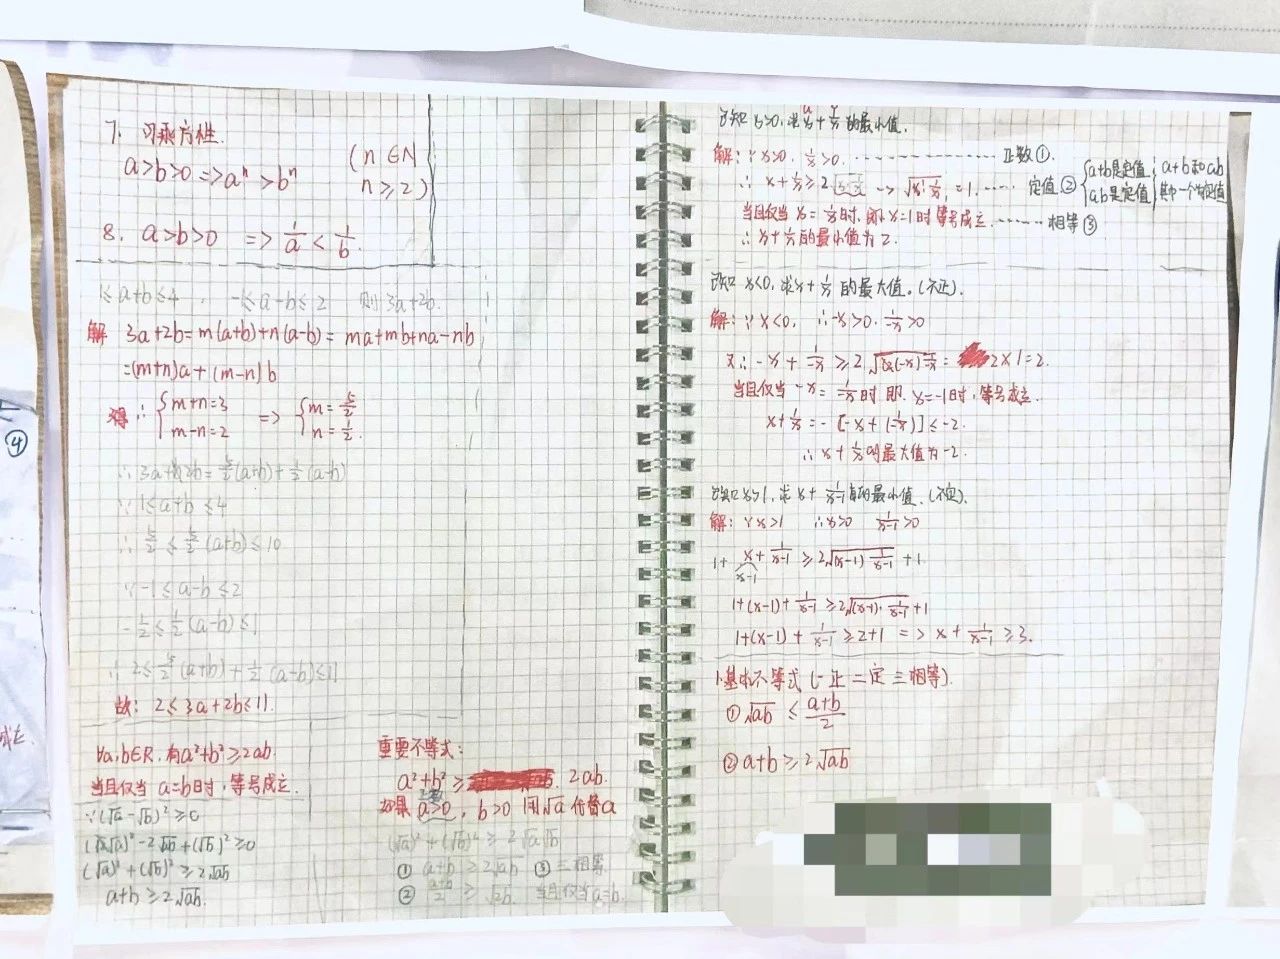 7. 可乘方性.
a>b>0 => aⁿ > bⁿ (n∈N n≥2)
8. a>b>0 => 1/a < 1/b.
1≤a+b≤4. -1≤a-b≤2 则3a+2b.
解 3a+2b=m(a+b)+n(a-b)= ma+mb+na-nb
=(m+n)a+(m-n)b
得∴ {m+n=3 m-n=2 => {m=5/2 n=1/2.
∴3a+2b=5/2(a+b)+1/2(a-b)
∵1≤a+b≤4
∴5/2≤5/2(a+b)≤10
∵-1≤a-b≤2
-1/2≤1/2(a-b)≤1
∴2≤5/2(a+b)+1/2(a-b)≤11
故: 2≤3a+2b≤11.
∀a,b∈R.有a²+b²≥2ab.
当且仅当 a=b时,等号成立.
∵(√a-√b)²≥0
(√a)²-2√ab+(√b)²≥0
(√a)²+(√b)²≥2√ab
a+b≥2√ab.
重要不等式:
a²+b²≥ 2ab.
如果 a>0, b>0 用√a代替a
(√a)²+(√b)²≥2√a√b
① a+b≥2√ab ③三相等
② a+b/2 ≥ √ab. 当且仅当a=b.
已知x>0,求x+1/x的最小值.
解:∵x>0. 1/x>0. 正数①.
∴ x+1/x≥2√x·1/x -> √x·1/x=1. 定值② {a+b是定值 ab是定值 } a+b和ab 其中一个为定值
当且仅当x=1/x时,即x=1时等号成立. 相等③
∴x+1/x的最小值为2.
已知x<0,求x+1/x的最大值.(不正).
解:∵x<0, ∴-x>0. 1/-x>0
又∴-x+1/-x≥2√(-x)1/-x= 2×1=2.
当且仅当-x=1/-x时,即x=-1时,等号成立.
x+1/x=-[-x+(-1/x)]≤-2.
∴x+1/x的最大值为-2.
已知x>1,求x+1/x-1的最小值.(不定).
解:∵x>1 ∴x>0 1/x-1>0
1+ x+1/x-1≥2√(x-1)1/x-1 +1
x-1
1+(x-1)+1/x-1≥2√(x-1)·1/x-1+1
1+(x-1)+1/x-1≥2+1 => x+1/x-1≥3.
1.基本不等式(一正二定三相等).
①√ab ≤ a+b/2
②a+b≥2√ab
④